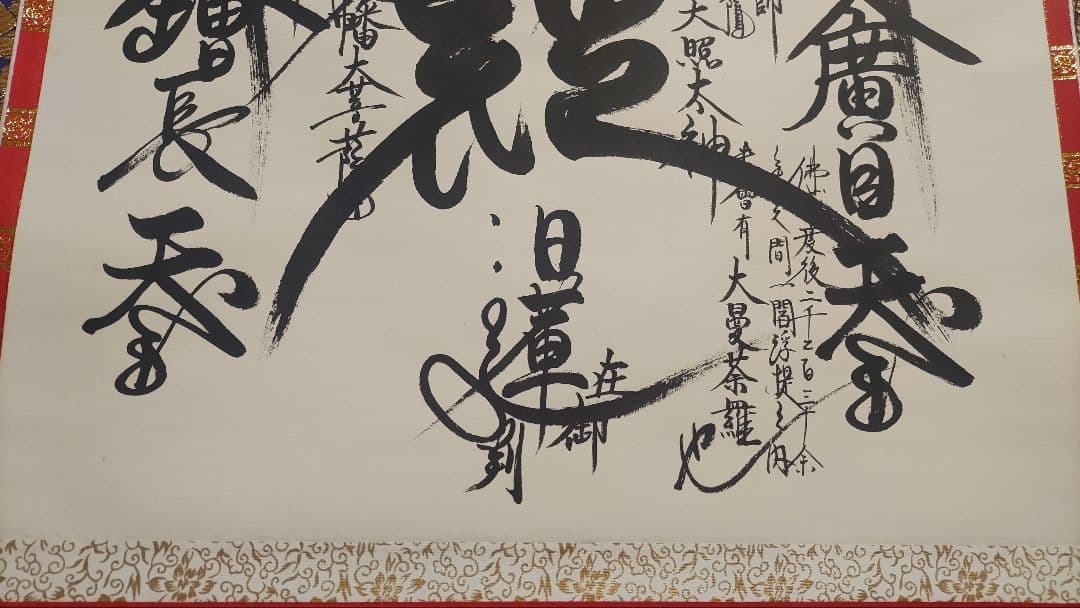 廣目天王
佛滅度後二千二百三十余
年之間一閻浮提之内
未曾有
大曼荼羅
也
天照太神
日蓮
在御
判
八幡大菩薩
増長天王